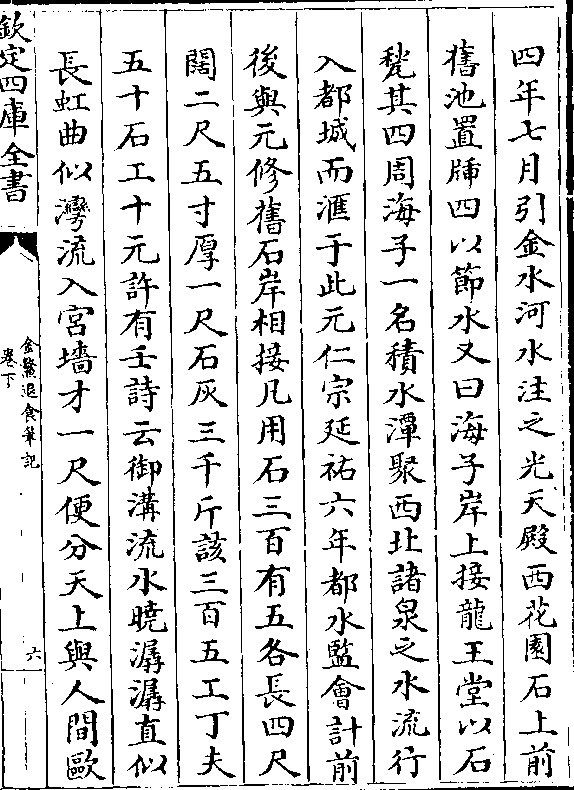 四年七月引金水河水注之光天殿西花園石上前
舊池置牐四以節水又曰海子岸上接龍王堂以石
甃其四周海子一名積水潭聚西北諸泉之水流行
入都城而滙于此元仁宗延祐六年都水監會計前
後與元修舊石岸相接凡用石三百有五各長四尺
闊二尺五寸厚一尺石灰三千斤該三百五工丁夫
五十石工十元許有壬詩云御溝流水曉潺潺直似
長虹曲似灣流入宮墻才一尺便分天上與人間歐
欽定四庫全書
金鰲退食筆記
卷下
六